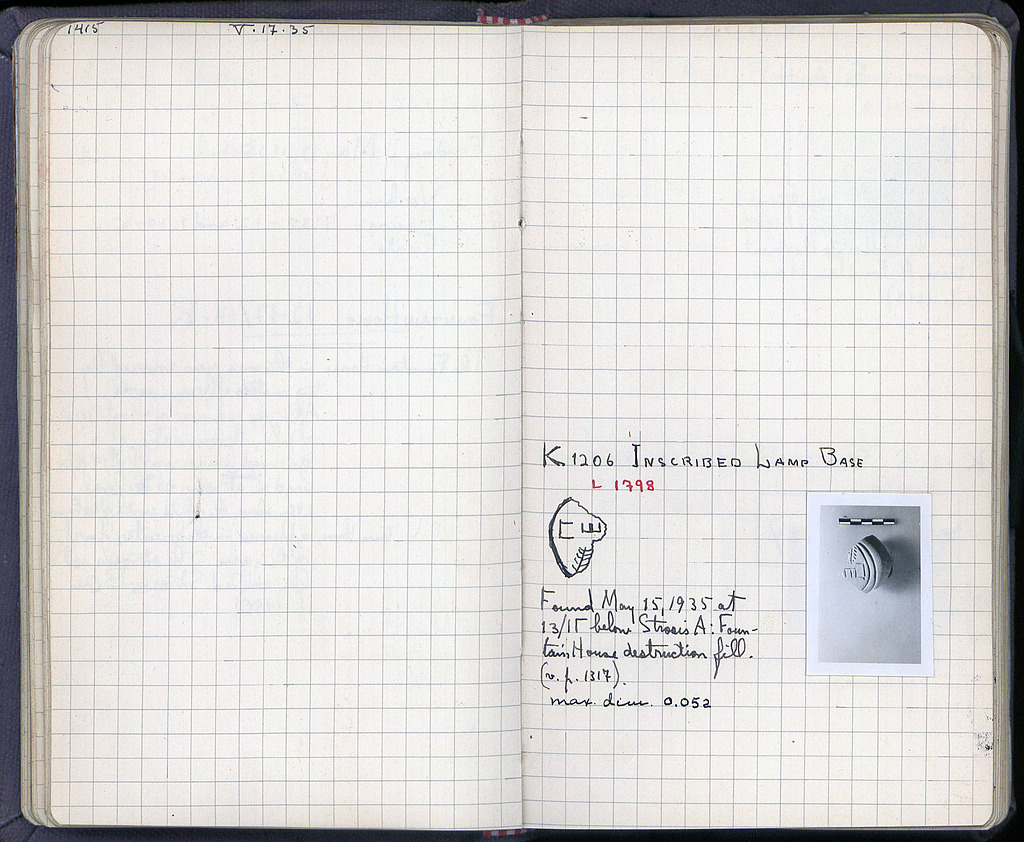 1415 V·17·35
K 1206 INSCRIBED LAMP BASE
L 1798
Found May 15, 1935 at
13/ΙΓ below Strosis A: Foun-
tain House destruction fill.
(v. p. 1317).
max. dim. 0.052